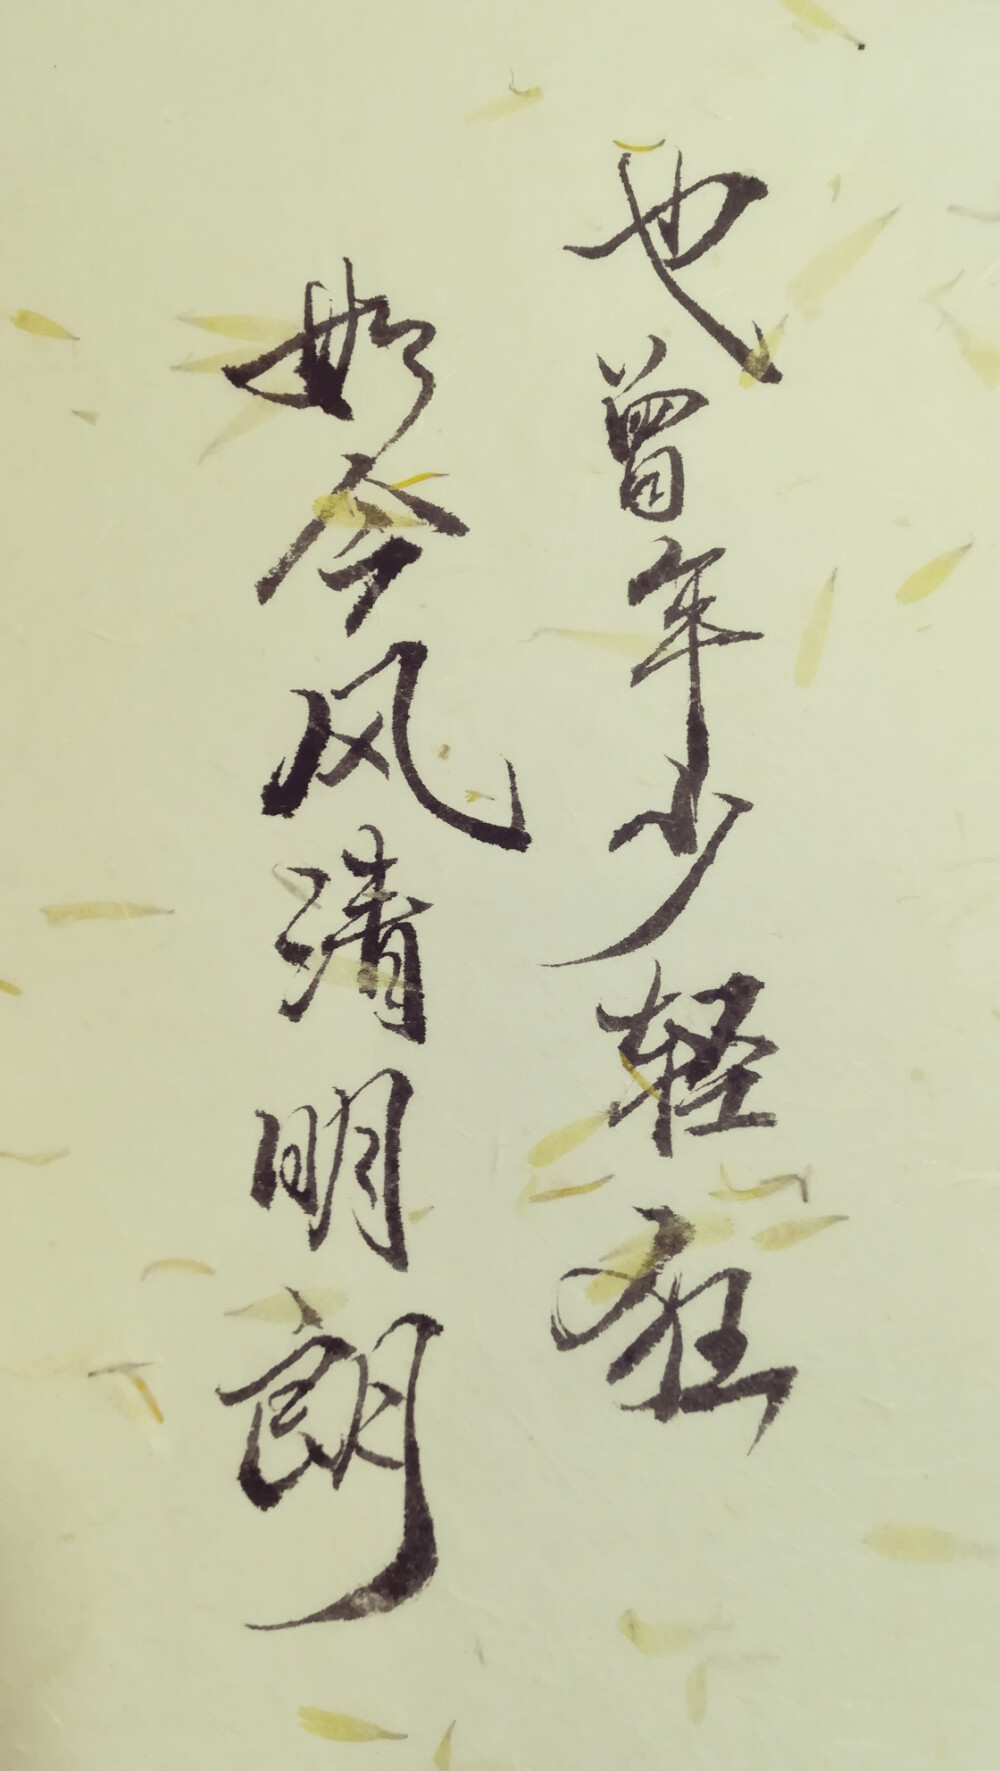 也曾年少轻狂
如今风清明朗